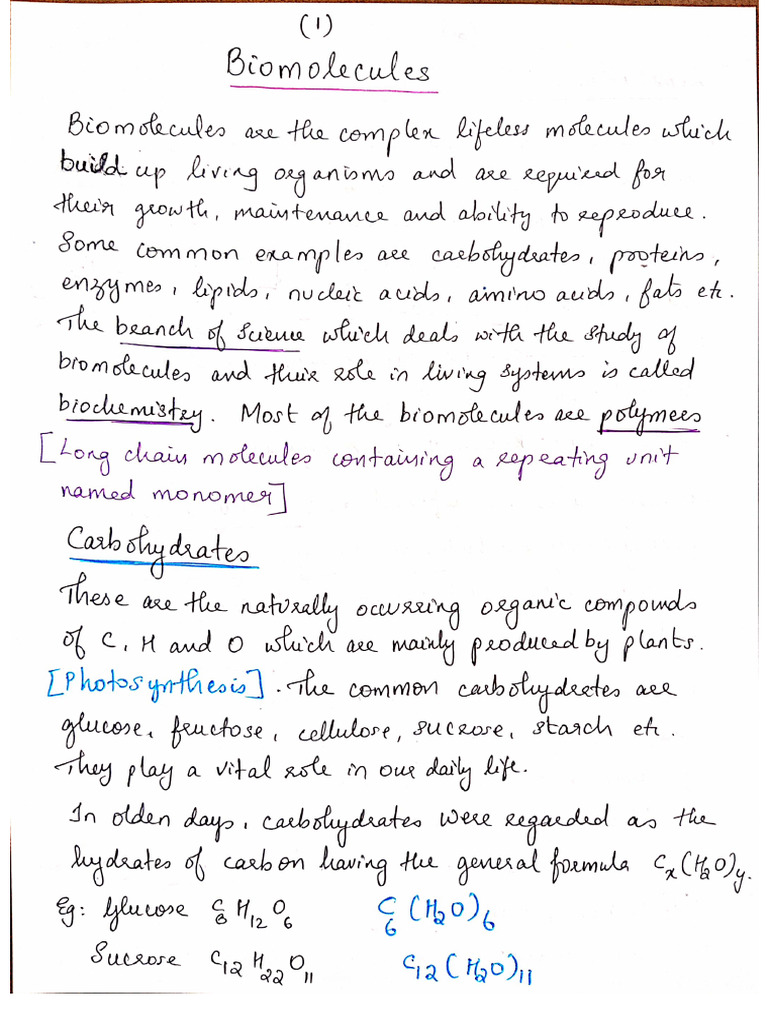 (1)
Biomolecules
Biomolecules are the complex lifeless molecules which
build up living organisms and are required for
their growth, maintenance and ability to reproduce.
Some common examples are carbohydrates, proteins,
enzymes, lipids, nucleic acids, amino acids, fats etc.
The branch of science which deals with the study of
biomolecules and their role in living systems is called
biochemistry. Most of the biomolecules are polymers
[Long chain molecules containing a repeating unit
named monomer]
Carbohydrates
These are the naturally occurring organic compounds
of C, H and O which are mainly produced by plants.
[Photosynthesis]. The common carbohydrates are
glucose, fructose, cellulose, sucrose, starch etc.
They play a vital role in our daily life.
In olden days, carbohydrates were regarded as the
hydrates of carbon having the general formula Cₓ(H₂O)y.
Eg: Glucose C₆H₁₂O₆ C₆(H₂O)₆
Sucrose C₁₂H₂₂O₁₁ C₁₂(H₂O)₁₁